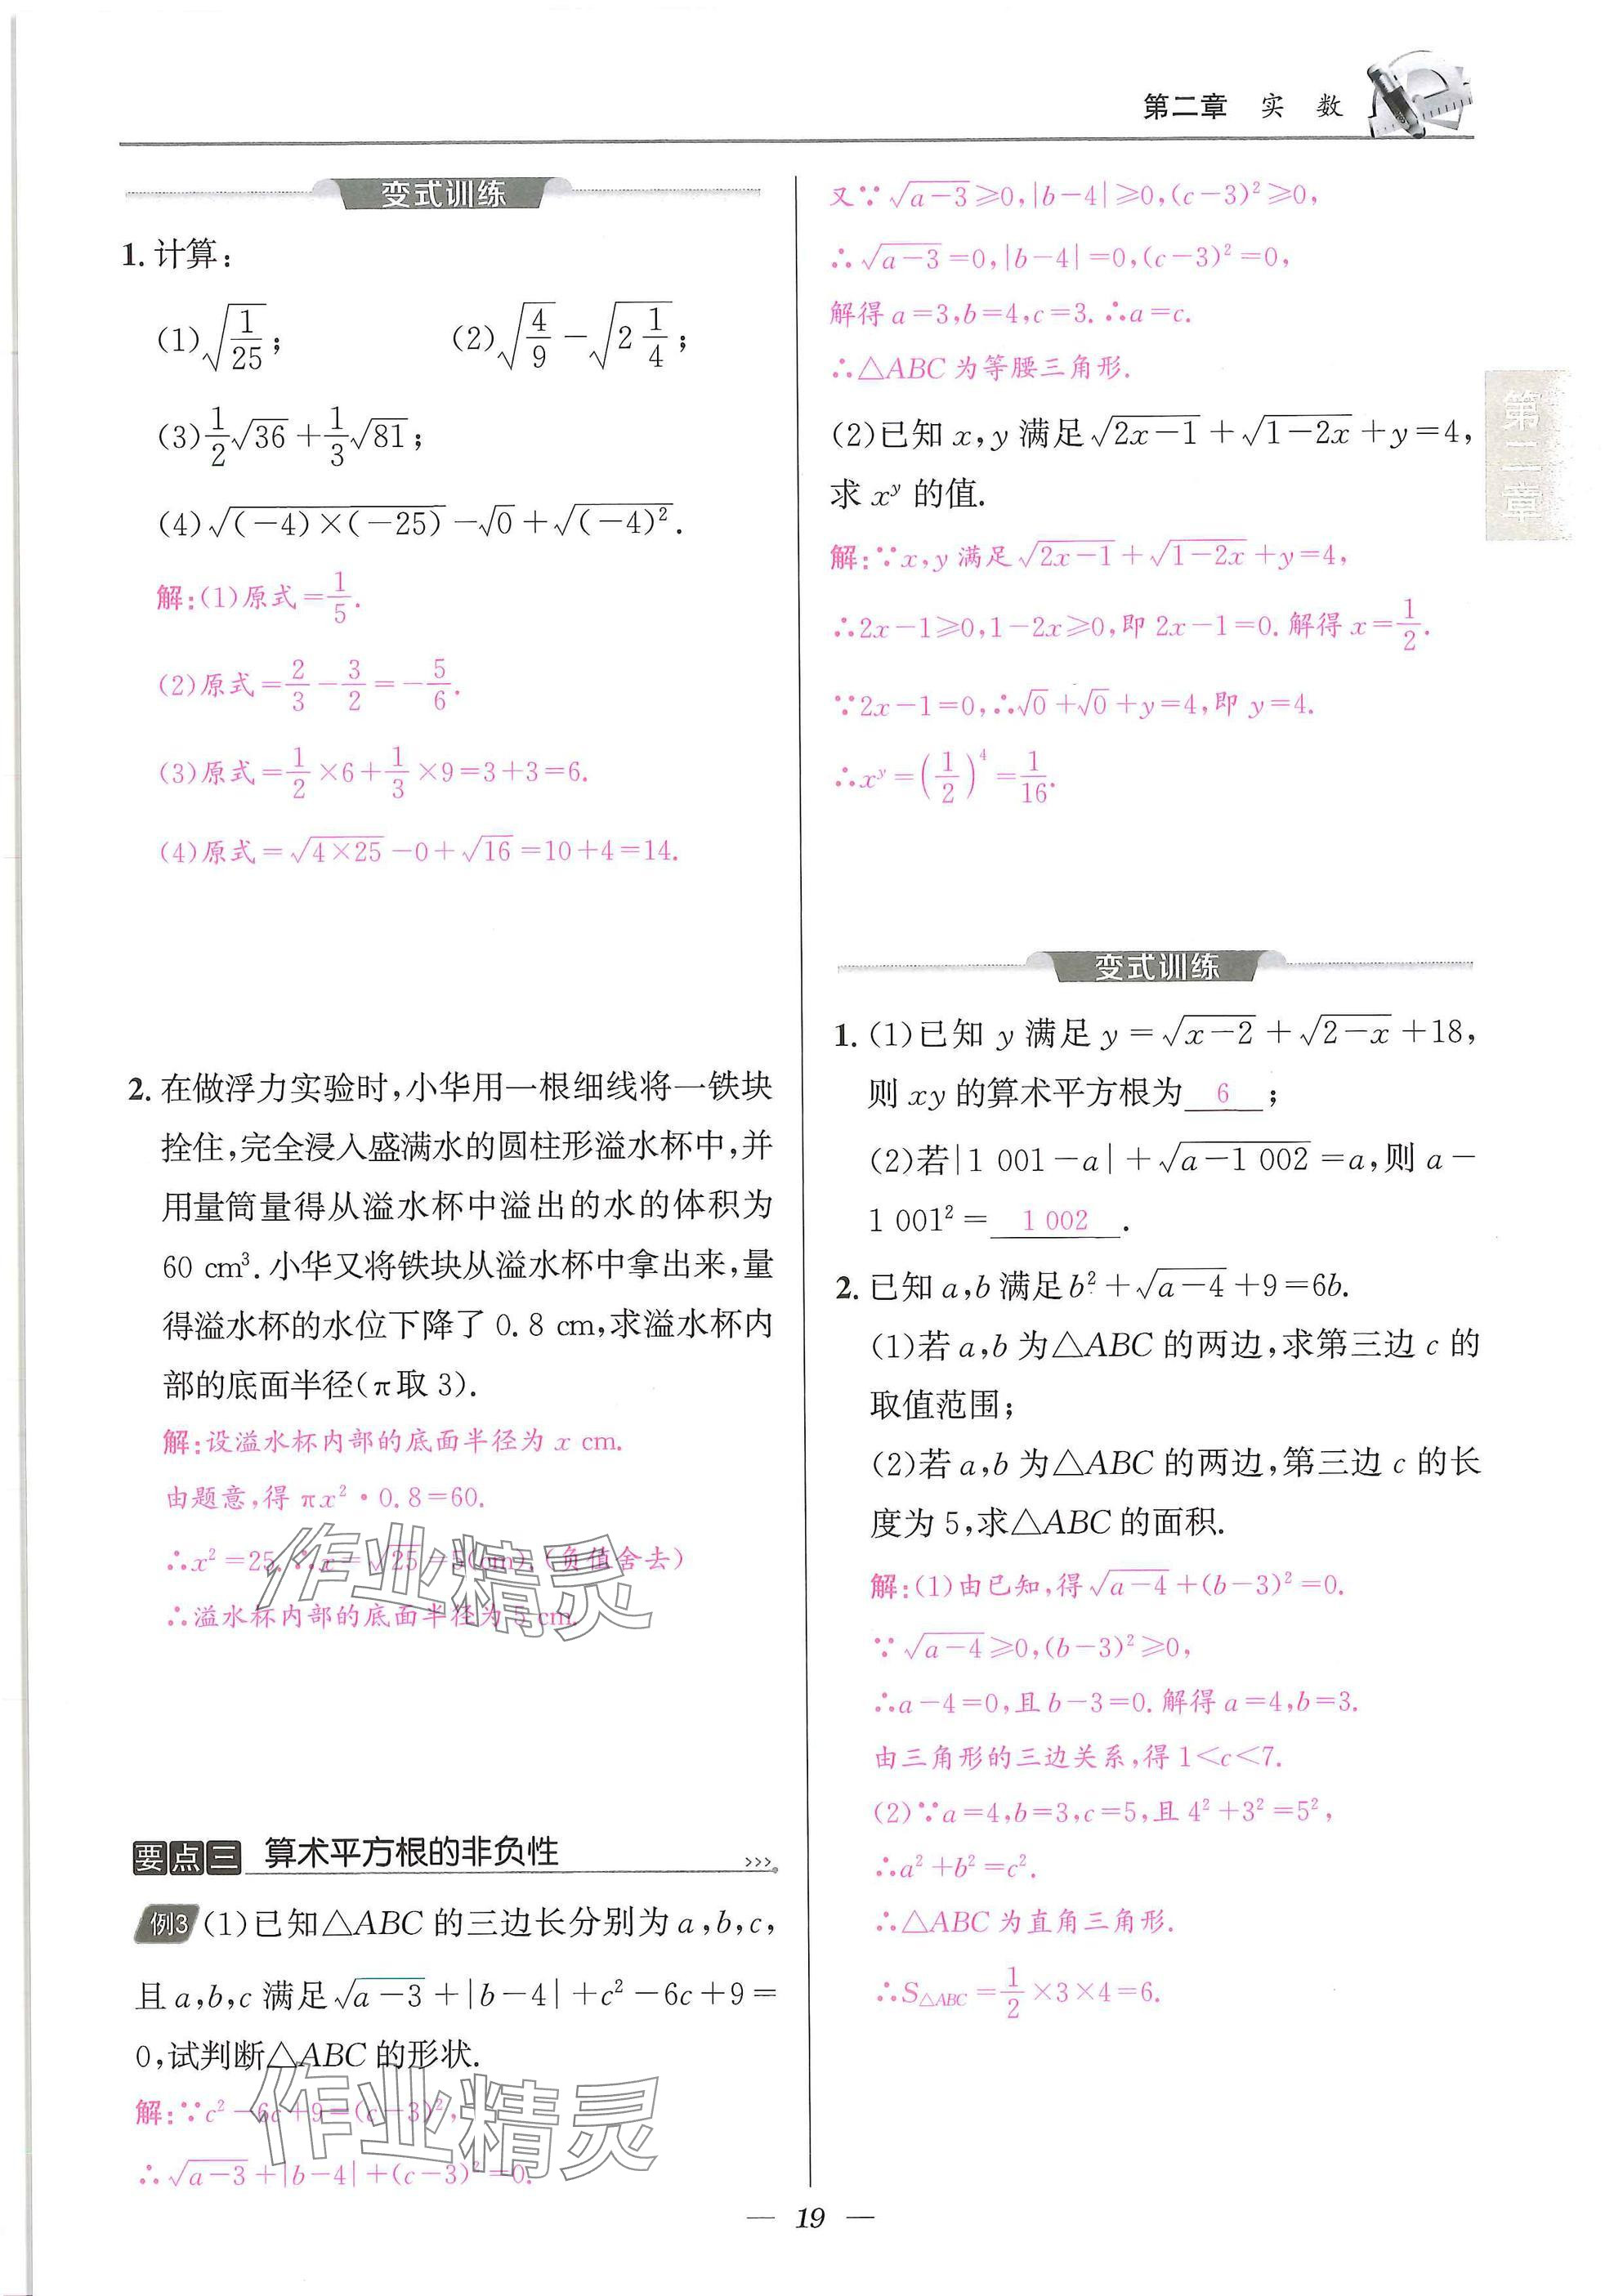 第二章 实 数
变式训练
1. 计算：
(1)√(1/25)； (2)√(4/9)－√(2 1/4)；
(3)1/2√36＋1/3√81；
(4)√((－4)×(－25))－√0＋√((－4)²).
解：(1)原式＝1/5.
(2)原式＝2/3－3/2＝－5/6.
(3)原式＝1/2×6＋1/3×9＝3＋3＝6.
(4)原式＝√(4×25)－0＋√16＝10＋4＝14.
2. 在做浮力实验时，小华用一根细线将一铁块
拴住，完全浸入盛满水的圆柱形溢水杯中，并
用量筒量得从溢水杯中溢出的水的体积为
60 cm³. 小华又将铁块从溢水杯中拿出来，量
得溢水杯的水位下降了 0.8 cm，求溢水杯内
部的底面半径(π取 3).
解：设溢水杯内部的底面半径为 x cm.
由题意，得 πx²·0.8＝60.
∴x²＝25.∵x＝√25＝5(cm).(负值舍去)
∴溢水杯内部的底面半径为 5 cm.
要点三 算术平方根的非负性 >>>
例3 (1)已知△ABC 的三边长分别为 a，b，c，
且 a，b，c 满足√(a－3)＋|b－4|＋c²－6c＋9＝
0，试判断△ABC 的形状.
解：∵c²－6c＋9＝(c－3)²，
∴√(a－3)＋|b－4|＋(c－3)²＝0.
又∵√(a－3)≥0，|b－4|≥0，(c－3)²≥0，
∴√(a－3)＝0，|b－4|＝0，(c－3)²＝0，
解得 a＝3，b＝4，c＝3. ∴a＝c.
∴△ABC 为等腰三角形.
(2)已知 x，y 满足√(2x－1)＋√(1－2x)＋y＝4，
求 xʸ 的值.
解：∵x，y 满足√(2x－1)＋√(1－2x)＋y＝4，
∴2x－1≥0，1－2x≥0，即 2x－1＝0. 解得 x＝1/2.
∵2x－1＝0，∴√0＋√0＋y＝4，即 y＝4.
∴xʸ＝(1/2)⁴＝1/16.
变式训练
1. (1)已知 y 满足 y＝√(x－2)＋√(2－x)＋18，
则 xy 的算术平方根为 6 ；
(2)若|1 001－a|＋√(a－1 002)＝a，则 a－
1 001²＝ 1 002 .
2. 已知 a，b 满足 b²＋√(a－4)＋9＝6b.
(1)若 a，b 为△ABC 的两边，求第三边 c 的
取值范围；
(2)若 a，b 为△ABC 的两边，第三边 c 的长
度为 5，求△ABC 的面积.
解：(1)由已知，得√(a－4)＋(b－3)²＝0.
∵√(a－4)≥0，(b－3)²≥0，
∴a－4＝0，且 b－3＝0. 解得 a＝4，b＝3.
由三角形的三边关系，得 1＜c＜7.
(2)∵a＝4，b＝3，c＝5，且 4²＋3²＝5²，
∴a²＋b²＝c².
∴△ABC 为直角三角形.
∴S△ABC＝1/2×3×4＝6.
第二章
作业精灵
作业精灵
— 19 —